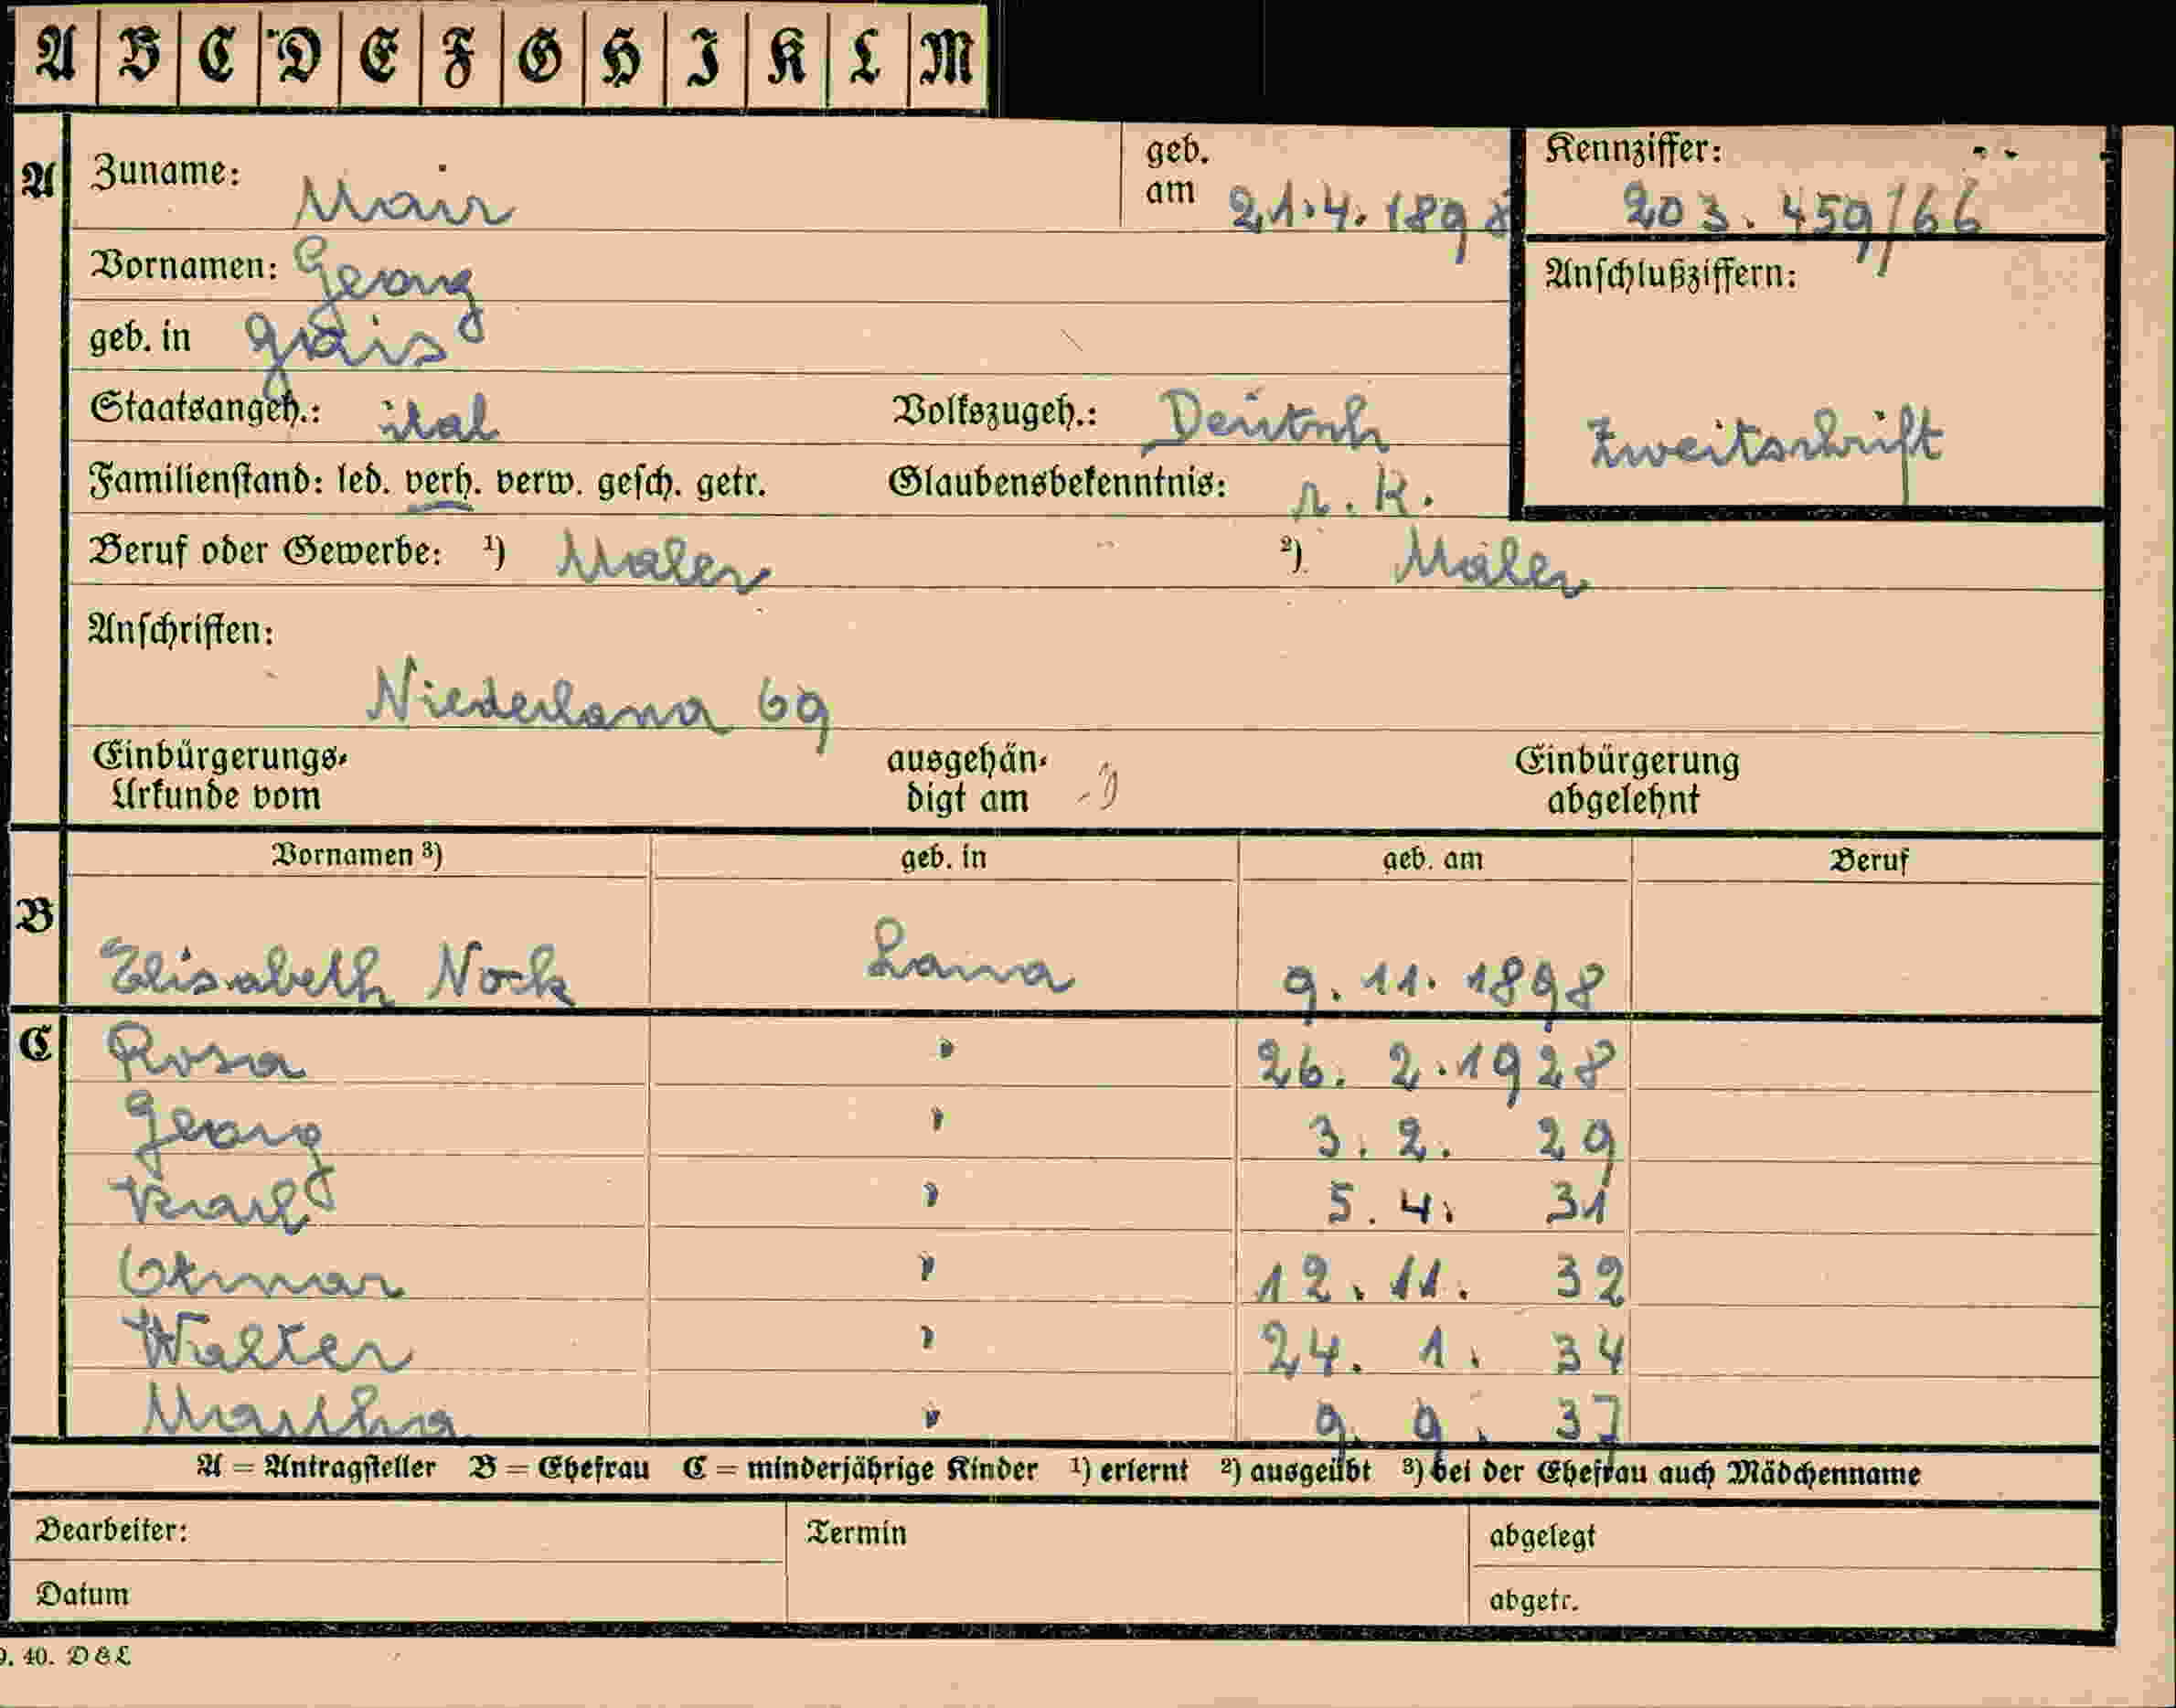 A B C D E F G H I K L M
A Zuname: Mair geb. am 21.4.1898 Kennziffer: 203.459/66
Vornamen: Georg Anschlußziffern:
geb. in Gais
Staatsangeh.: ital Volkszugeh.: Deutsch Zweitschrift
Familienstand: led. verh. verw. gesch. getr. Glaubensbekenntnis: r. k.
Beruf oder Gewerbe: ¹) Maler ²) Maler
Anschriften:
Niederlana 69
Einbürgerungs-Urkunde vom ausgehändigt am Einbürgerung abgelehnt
Vornamen ³) geb. in geb. am Beruf
B Elisabeth Nock Lana 9. 11. 1898
C Rosa " 26. 2. 1928
Georg " 3. 2. 29
Karl " 5. 4. 31
Otmar " 12. 11. 32
Walter " 24. 1. 34
Martha " 9. 9. 37
A = Antragsteller B = Ehefrau C = minderjährige Kinder ¹) erlernt ²) ausgeübt ³) bei der Ehefrau auch Mädchenname
Bearbeiter: Termin abgelegt
Datum abgetr.
9. 40. D&L